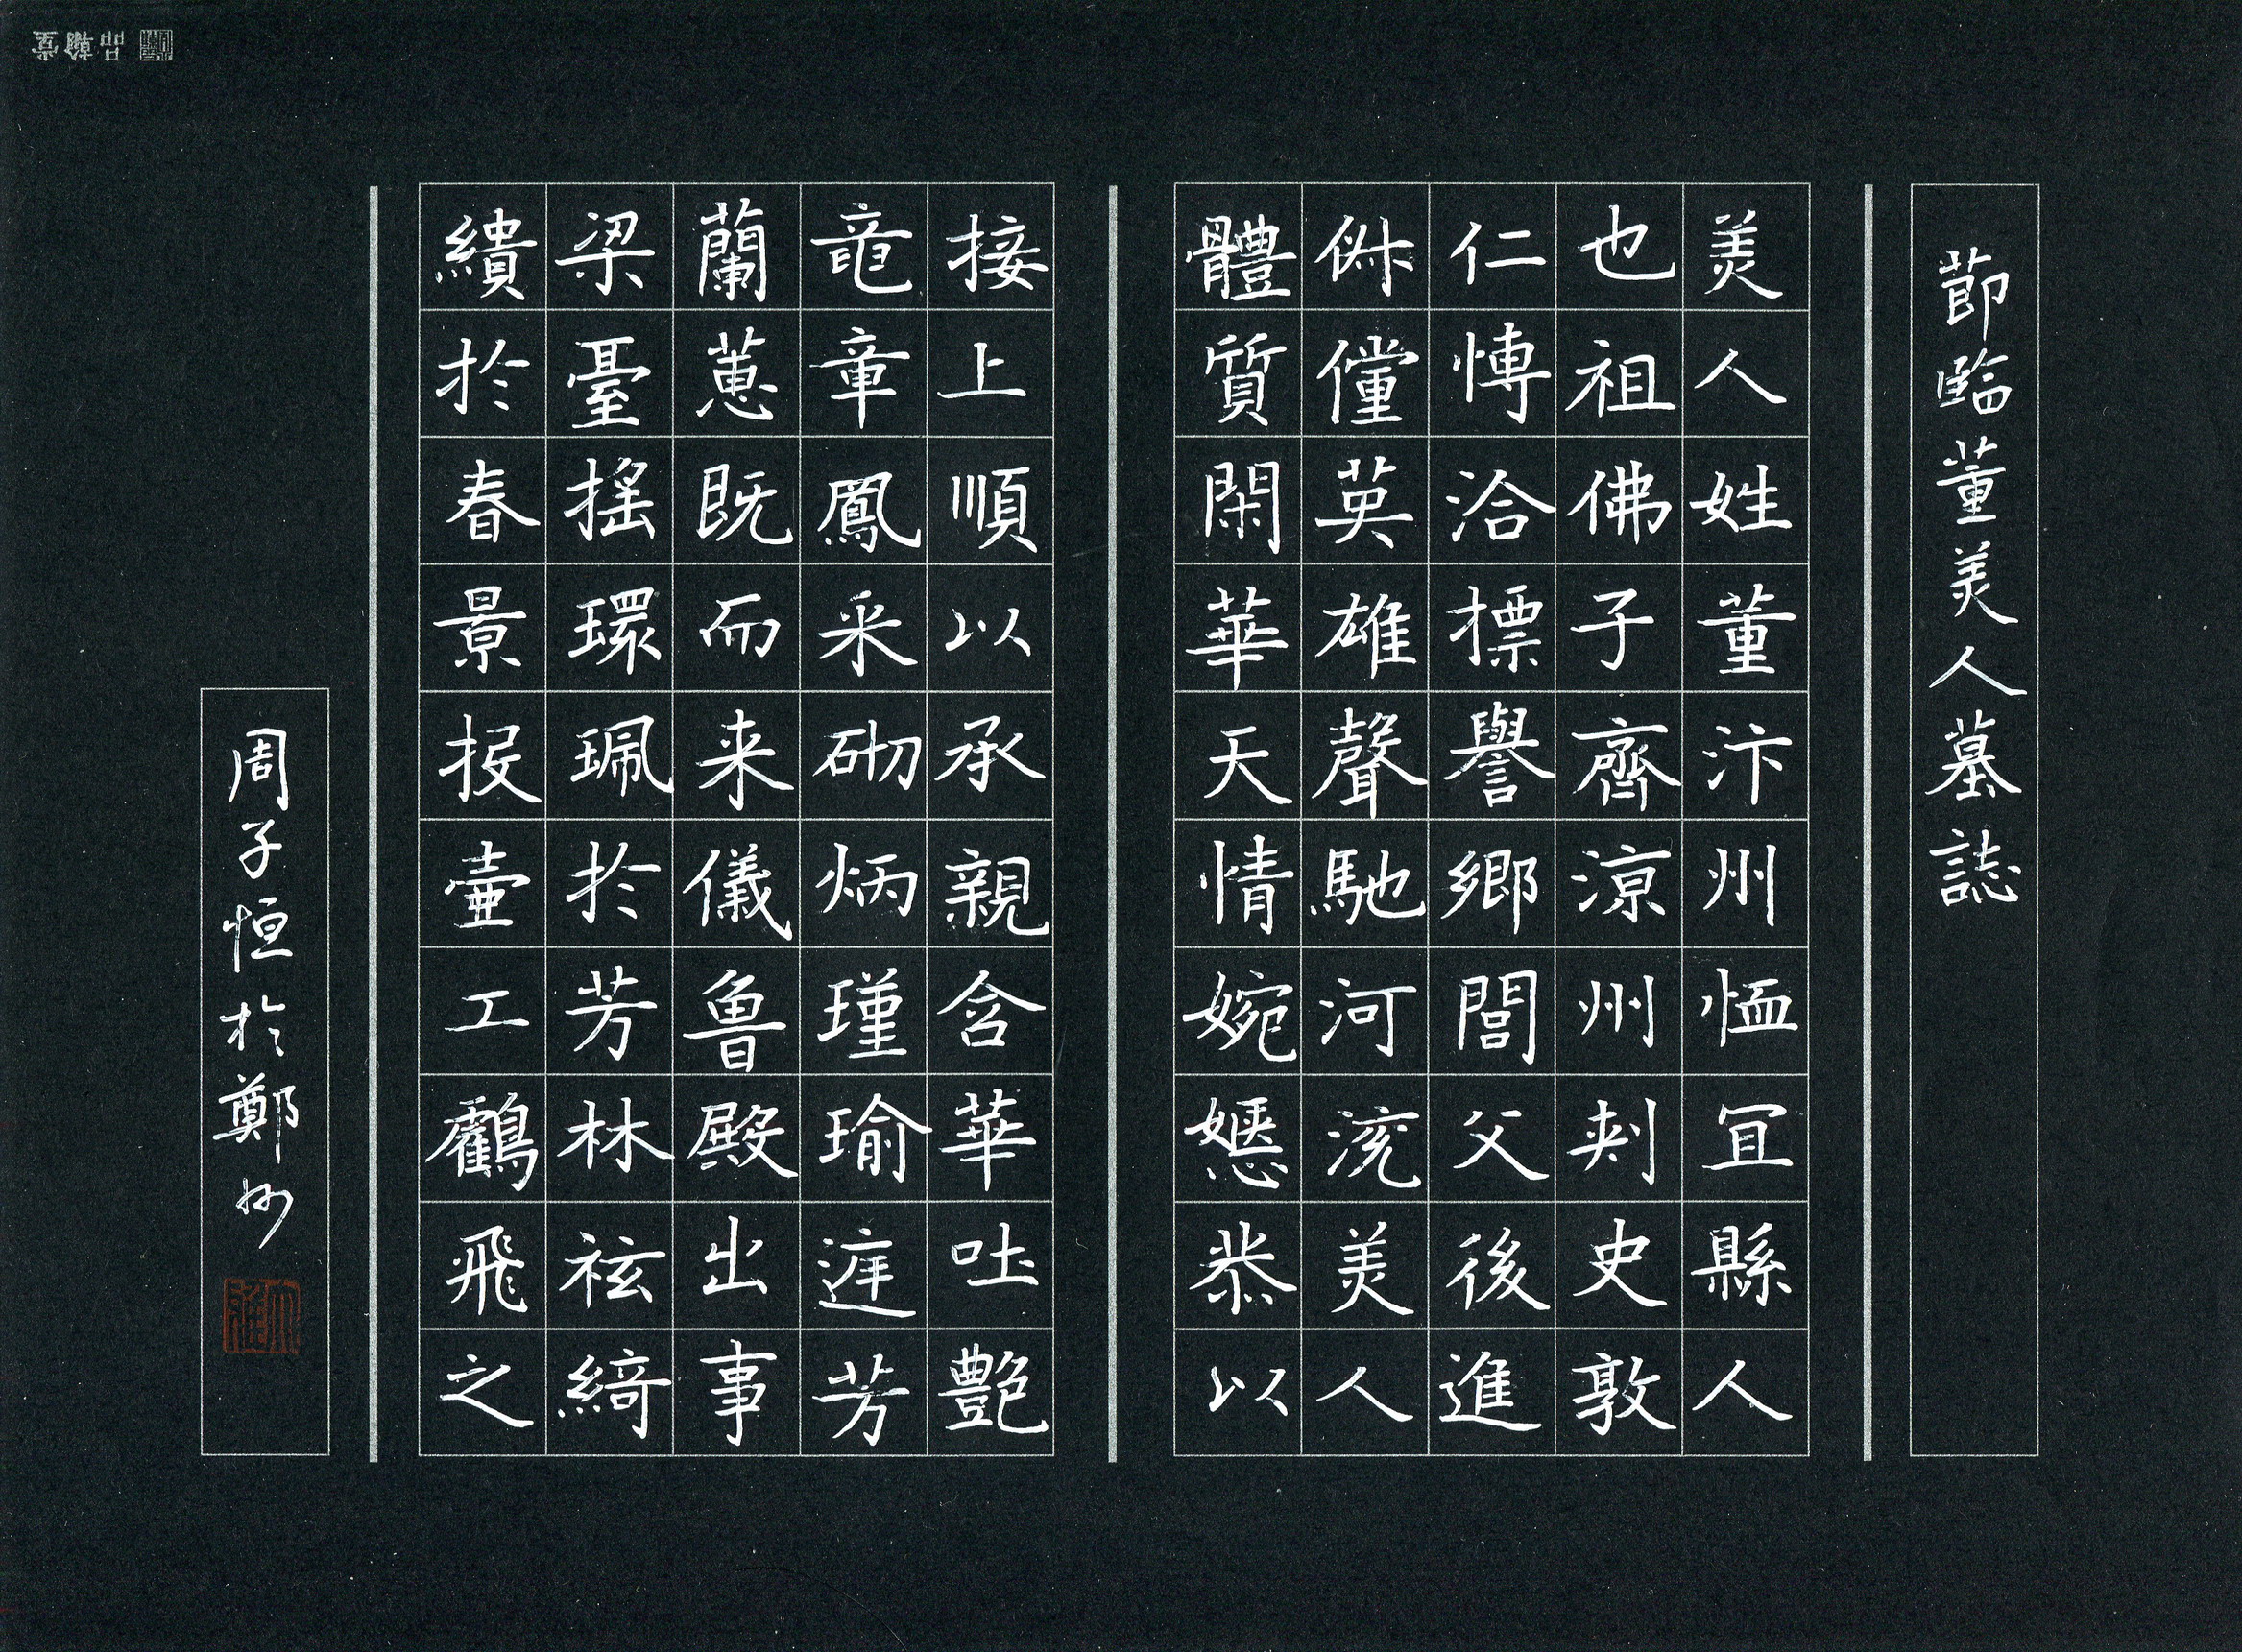 節臨董美人墓誌
美人姓董汴州恤冝縣人
也祖佛子齊涼州刾史敦
仁愽洽摽譽鄉閭父後進
俶儻英雄聲馳河流美人
體質閑華天情婉嫕恭以
接上順以承親含華吐艶
竜章鳳采砌炳瑾瑜庭芳
蘭蕙既而来儀魯殿出事
梁臺搖環珮於芳林袨綺
繢於春景投壷工鸖飛之
周子恒於鄭州
品翰堂